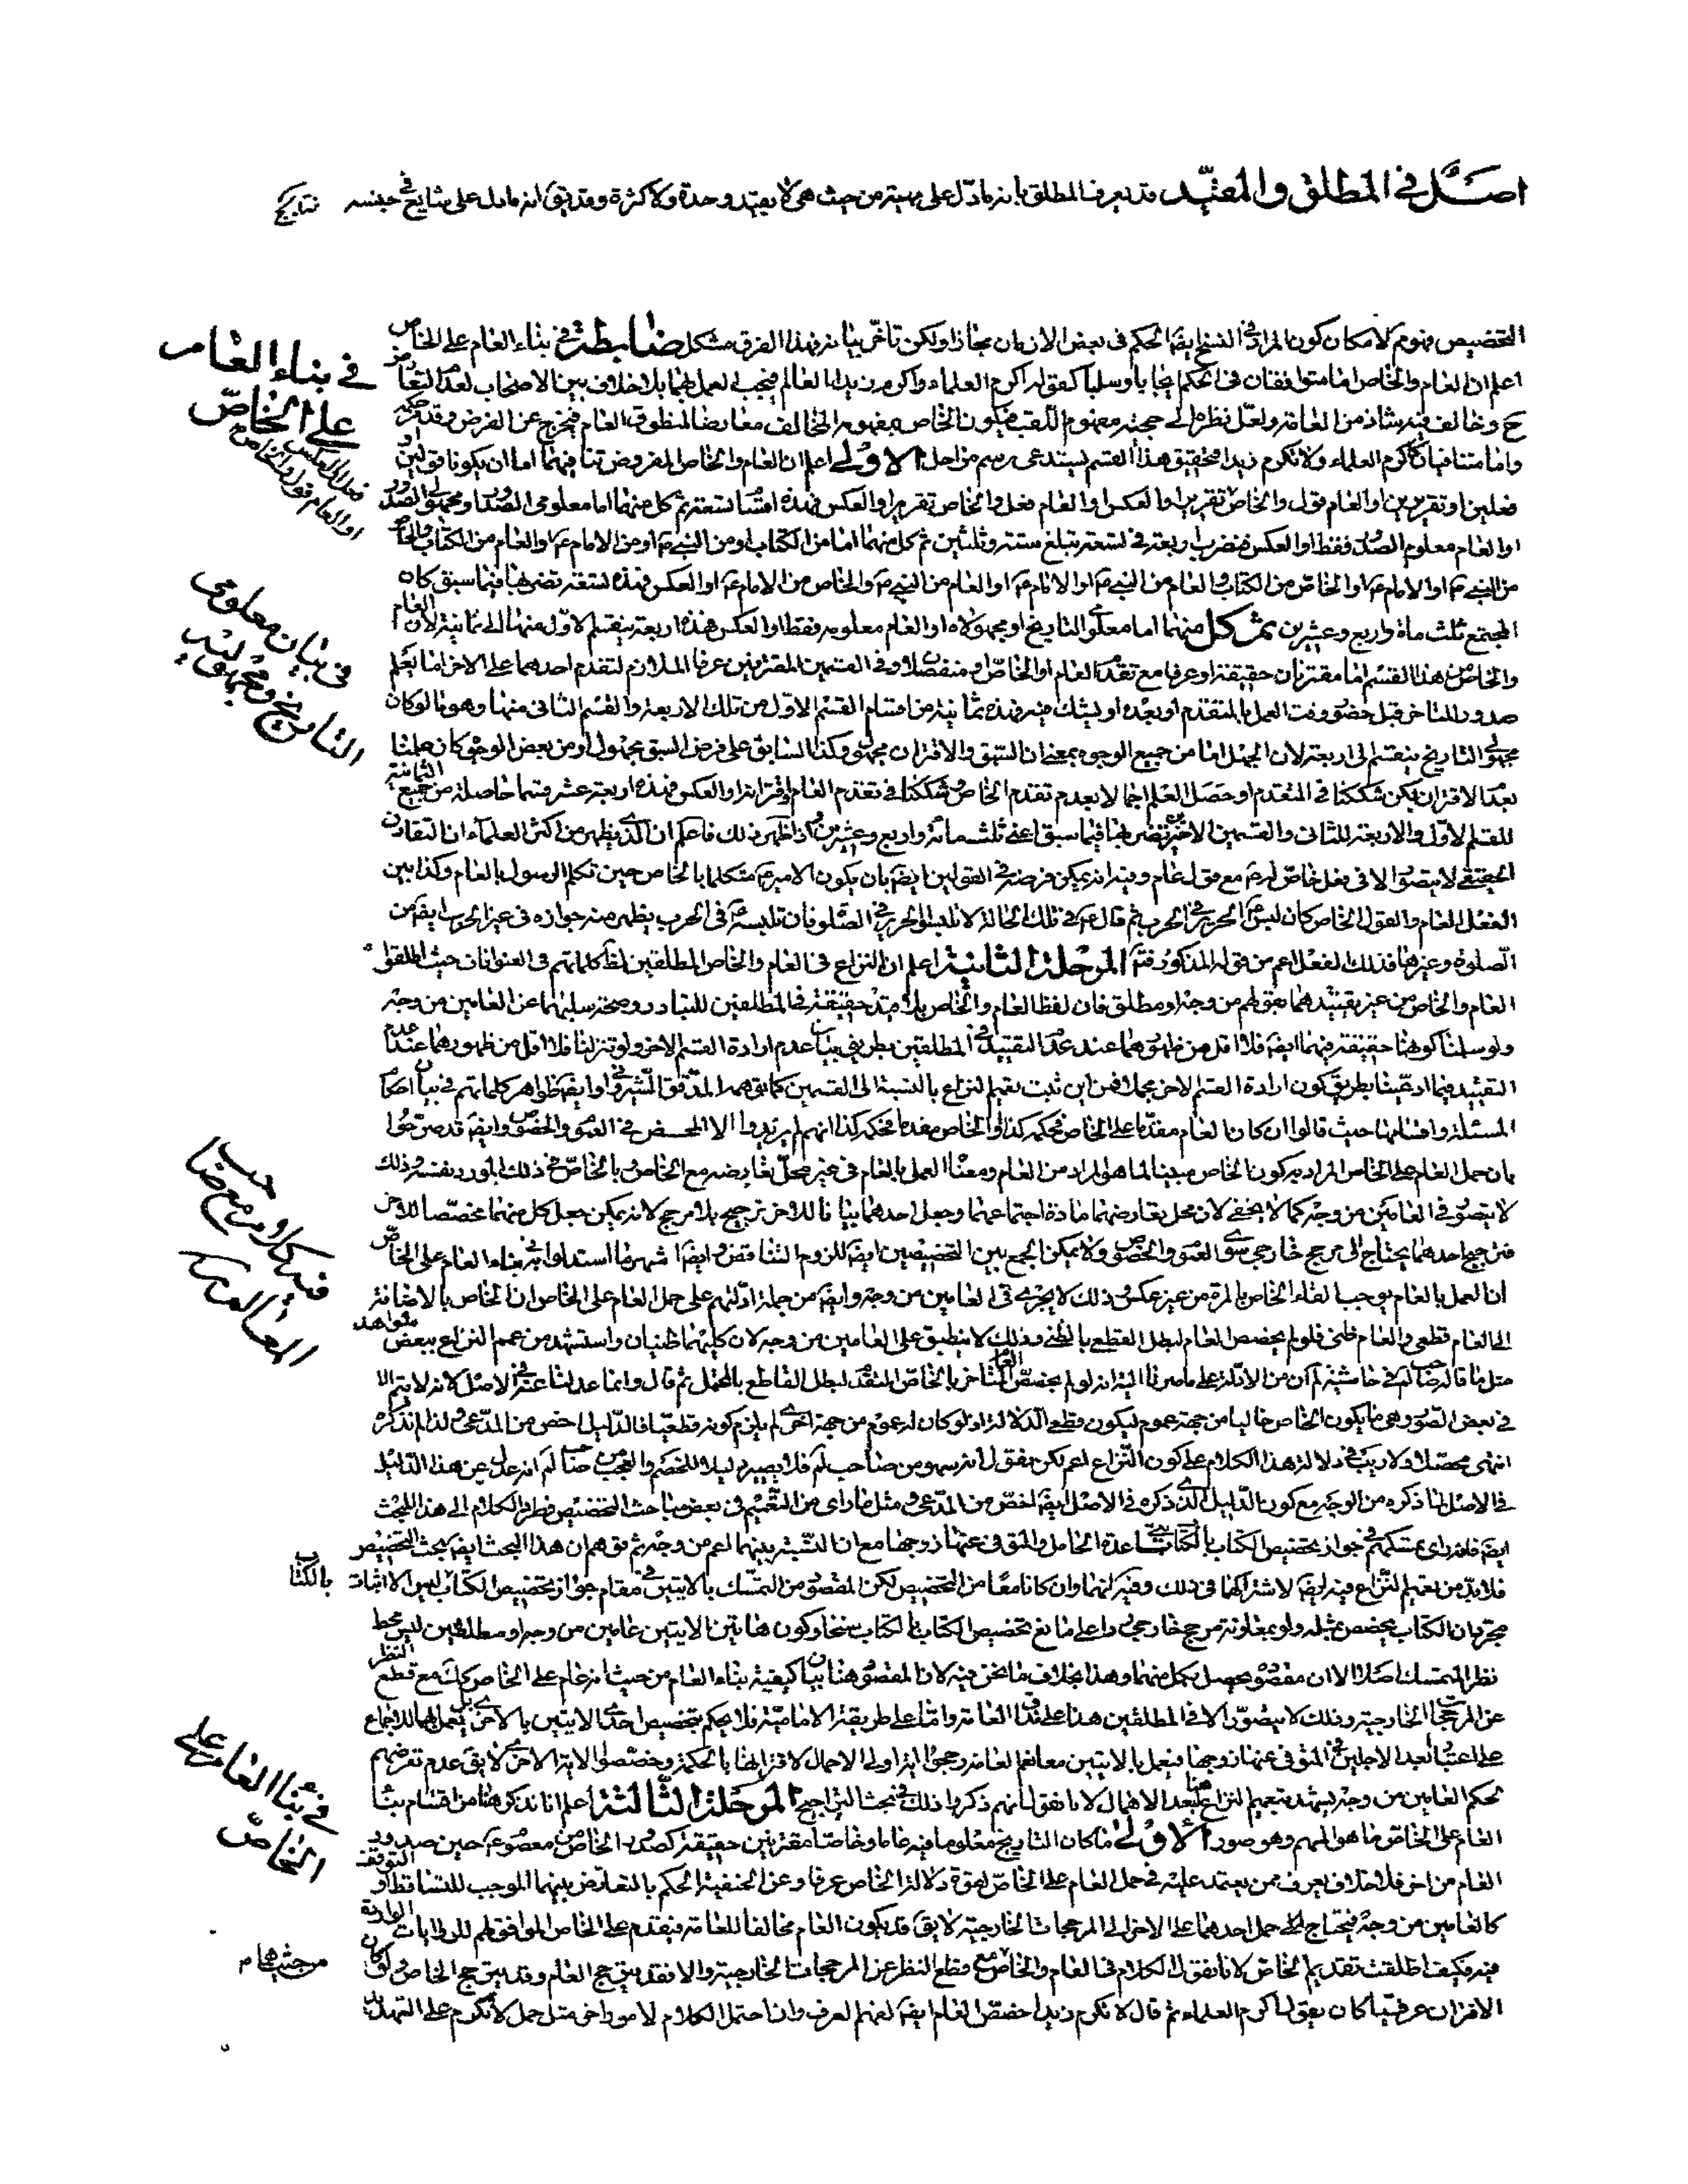 اصل في المطلق والمقيد قد يعرف المطلق بانه ما دل على مهية من حيث هي لا بقيد وحدة ولا كثرة وقد يق انه ما دل على شايع في جنسه
التخصيص بهوم لامكان كون المراد في النسخ ايضا الحكم في بعض الازمان مجازا ولكن تاخر بيانه فهذا الفرق مشكل ضابطة في بناء العام على الخاص
اعلم ان العام والخاص اما متوافقان في الحكم ايجابا وسلبا كقوله اكرم العلماء واكرم زيدا العالم فيجب العمل بهما بلا خلاف بين الاصحاب لعدم التعارض
ح وخالف فيه شاذ من العامة ولعل نظره الى حجية مفهوم اللقب فيكون الخاص بمفهومه المخالف معارضا لمنطوق العام فيخرج عن الفرض وقد مر حكمه
واما متنافيان كاكرم العلماء ولا تكرم زيدا فتحقيق هذا القسم يستدعي رسم مراحل الاولى اعلم ان العام والخاص المفروض تنافيهما اما ان يكونا قولين او
فعلين او تقريرين او العام قول والخاص تقرير او العكس او العام فعل والخاص تقرير او العكس فهذه اقسام تسعة ثم كل منهما اما معلومي الصدور او مجهولي الصدور
او العام معلوم الصدور فقط او العكس فتضرب اربعة في تسعة تبلغ ستة وثلثين ثم كل منهما اما من الكتاب او من النبي ص او من الامام ع او العام من الكتاب والخاص
من النبي ص او الامام ع او الخاص من الكتاب والعام من النبي ص او الامام ع او العام من النبي ص والخاص من الامام ع او العكس فهذه تسعة تضربها فيما سبق كان
المجتمع ثلث ماة واربع وعشرين ثم كل منهما اما معلوم التاريخ او مجهولاه او العام معلومه فقط او العكس فهذه اربعة ينقسم الاول منها الى ثمانية لان العام
والخاص من هذا القسم اما مقترنان حقيقة او عرفا مع تقدم العام او الخاص او منفصلان وفي القسمين المقترنين عرفا الملازم لتقدم احدهما على الاخر اما يعلم
صدور المتاخر قبل حضور وقت العمل بالمتقدم او بعده او يشك فيه فهذه ثمانية من اقسام القسم الاول من تلك الاربعة والقسم الثاني منها وهو ما لو كان
مجهولي التاريخ ينقسم الى اربعة لان الجهل اما من جميع الوجوه بمعنى ان السبق والاقتران مجهول وكذا السابق على فرض السبق مجهول او من بعض الوجوه كان علمنا
بعدم الاقتران لكن شككنا في المتقدم او حصل العلم اجمالا بعدم تقدم الخاص وشككنا في تقدم العام او اقترانه او العكس فهذه اربعة عشر قسما حاصلة من جميع الثمانية
للقسم الاول والاربعة للثاني والقسمين الاخيرين تضربها فيما سبق اعني ثلثمائة واربع وعشرين اذا ظهر ذلك فاعلم ان الذي يظهر من اكثر العلماء ان التقارن
الحقيقي لا يتصور الا في فعل خاص له ع مع قول عام وفيه انه يمكن فرضه في القولين ايضا بان يكون الامير ع متكلما بالخاص حين تكلم الرسول بالعام وكذا بين
الفعل العام والقول الخاص كان لبس ع الحرير في الحرب ثم قال ع في تلك الحالة لا تلبسوا الحرير في الصلوة فان تلبسه ع في الحرب يظهر منه جوازه في غير الحرب ايضا من
الصلوة وغيرها فذلك الفعل اعم من قوله المذكور فتم المرحلة الثانية اعلم ان النزاع في العام والخاص المطلقين لظاهر كلماتهم في العنوانات حيث اطلقوا
العام والخاص من غير تقييدهما بقولهم من وجه او مطلق فان لفظ العام والخاص بلا قيد حقيقة في المطلقين للتبادر وصحة سلبهما عن العامين من وجه
ولو سلمنا كونها حقيقة فيهما ايضا فلا اقل من ظهورهما عند عدم التقييد في المطلقين بطريق بيان عدم ارادة القسم الاخر ولو تنزلنا فلا اقل من ظهورهما عند عدم
التقييد فيما ادعينا بطريق كون ارادة القسم الاخر مجملا فمن اين ثبت تعميم النزاع بالنسبة الى القسمين كما توهمه المدقق الشيرواني وايضا ظواهر كلماتهم في بيان احكام
المسئلة واقسامها حيث قالوا ان كان العام مقدما على الخاص فحكمه كذا او الخاص مقدما فحكمه كذا انهم لم يريدوا الا المحض في العموم والخصوص وايضا قد صرحوا
بان حمل العام على الخاص المراد به كون الخاص مبينا لما هو المراد من العام ومعناه العمل بالعام في غير محل تعارضه مع الخاص وبالخاص في ذلك المورد نفسه وذلك
لا يتصور في العامين من وجه كما لا يخفى لان محل تعارضهما مادة اجتماعهما وجعل احدهما بيانا للاخر ترجيح بلا مرجح لانه يمكن جعل كل منهما مخصصا للاخر
فترجيح احدهما يحتاج الى مرجح خارجي سوى العموم والخصوص ولا يمكن الجمع بين التخصيصين ايضا للزوم التناقض وايضا اشهر ما استدلوا به في بناء العام على الخاص
ان العمل بالعام يوجب الغاء الخاص بالمرة من غير عكس وذلك لا يجري في العامين من وجه وايضا من جملة ادلتهم على حمل العام على الخاص ان الخاص بالاضافة
الى العام قطعي والعام ظني فلو لم يخصص العام لبطل القطعي بالظني وذلك لا ينطبق على العامين من وجه لان كليهما ظنيان واستشهد من عمم النزاع ببعض شواهد
مثل ما قاله صاحب لم في حاشية لم ان من الادلة على ما صرنا اليه انه لو لم يخصص العام المتاخر بالخاص المتقدم لبطل القاطع بالمحتمل ثم قال وانما عدلنا عنه في الاصل لانه لا يتم الا
في بعض الصور وهي ما يكون الخاص خاليا من جهة عموم ليكون قطعي الدلالة اذ لو كان له عموم من جهة اخرى لم يلزم كونه قطعيا فالدليل اخص من المدعى ولذا لم نذكره
انتهى محصلا ولا ريب في دلالة هذا الكلام على كون النزاع اعم لكن نقول انه سهو من صاحب لم فلا يصير دليلا للخصم والعجب من صاحب لم انه عدل عن هذا الدليل
في الاصل لما ذكره من الوجه مع كون الدليل الذي ذكره في الاصل ايضا اخص من المدعى ومثل ما راى من التعميم في بعض مباحث التخصيص فطرد الكلام الى هذا المبحث
ايضا فانه راى تمسكهم في جواز تخصيص الكتاب بالكتاب بايتي عدة الحامل والمتوفى عنها زوجها مع ان النسبة بينهما اعم من وجه ثم توهم ان هذا البحث ايضا كبحث التخصيص بالكتاب
فلابد من تعميم النزاع فيه ايضا لاشتراكهما في ذلك وفيه انهما وان كانا معا من التخصيص لكن المقصود من التمسك بالايتين في مقام جواز تخصيص الكتاب ليس الا اثبات
مجرد ان الكتاب يخصص بمثله ولو بمعاونة مرجح خارجي ردا على مانع تخصيص الكتاب بالكتاب نسخا وكون هاتين الايتين عامين من وجه او مطلقين ليس محط
نظر المتمسك اصلا الا ان مقصوده يحصل بكل منهما وهذا بخلاف ما نحن فيه لان المقصود هنا بيان كيفية بناء العام من حيث انه عام على الخاص كك مع قطع النظر
عن المرجحات الخارجية وذلك لا يتصور الا في المطلقين هذا على مذاق العامة واما على طريقة الامامية فلا يحكم بتخصيص احدى الايتين بالاخرى بل يعمل بهما للاجماع
على اعتبار ابعد الاجلين في المتوفى عنها زوجها فيعمل بالايتين معا نعم العامة رجحوا اية اولى الاحمال لاقترانها بالحكمة وخصصوا الاية الاخرى لا يق عدم تعرضهم
لحكم العامين من وجه يشهد بتعميم النزاع هنا لبعد الاهمال لانا نقول انهم ذكروا ذلك في بحث التراجيح المرحلة الثالثة اعلم انا نذكر هنا من اقسام بناء
العام على الخاص ما هو المهم وهو صور الاولى ما كان التاريخ معلوما فيه عاما وخاصا مقترنين حقيقة كصدور الخاص من معصوم ع حين صدور
العام من اخر فلا خلاف اجد ممن يعتمد عليه في حمل العام على الخاص لقوة دلالة الخاص عرفا وعن الحنفية الحكم بالتعارض بينهما الموجب للتساقط او التوقف
كالعامين من وجه فيحتاج الى حمل احدهما على الاخر الى المرجحات الخارجية لا يق قد يكون العام مخالفا للعامة فيقدم على الخاص الموافق لهم للروايات الواردة
فيه فكيف اطلقت تقديم الخاص لانا نقول الكلام في العام والخاص مع قطع النظر عن المرجحات الخارجية والا فقد يترجح العام وقد يترجح الخاص ولو كان
الاقتران عرفيا كان يقول اكرم العلماء ثم قال لا تكرم زيدا خصص العام ايضا لفهم العرف وان احتمل الكلام لامور اخر مثل حمل لا تكرم على التهديد
في بناء العام
على الخاص
فعل او العكس
او العام قول والخاص
في بيان معلومي
التاريخ ومجهوليه
فيه كلام مع صاحب
المعالم
في بناء العام على
الخاص
من حيث هما م